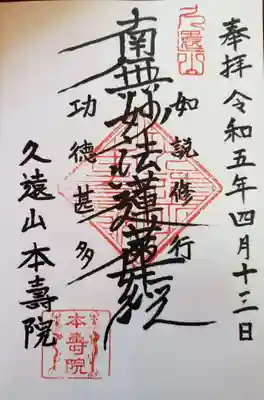 奉拝 令和五年四月十三日
久遠山
如説修行
南無妙法蓮華経
功徳甚多
久遠山本壽院
本壽院